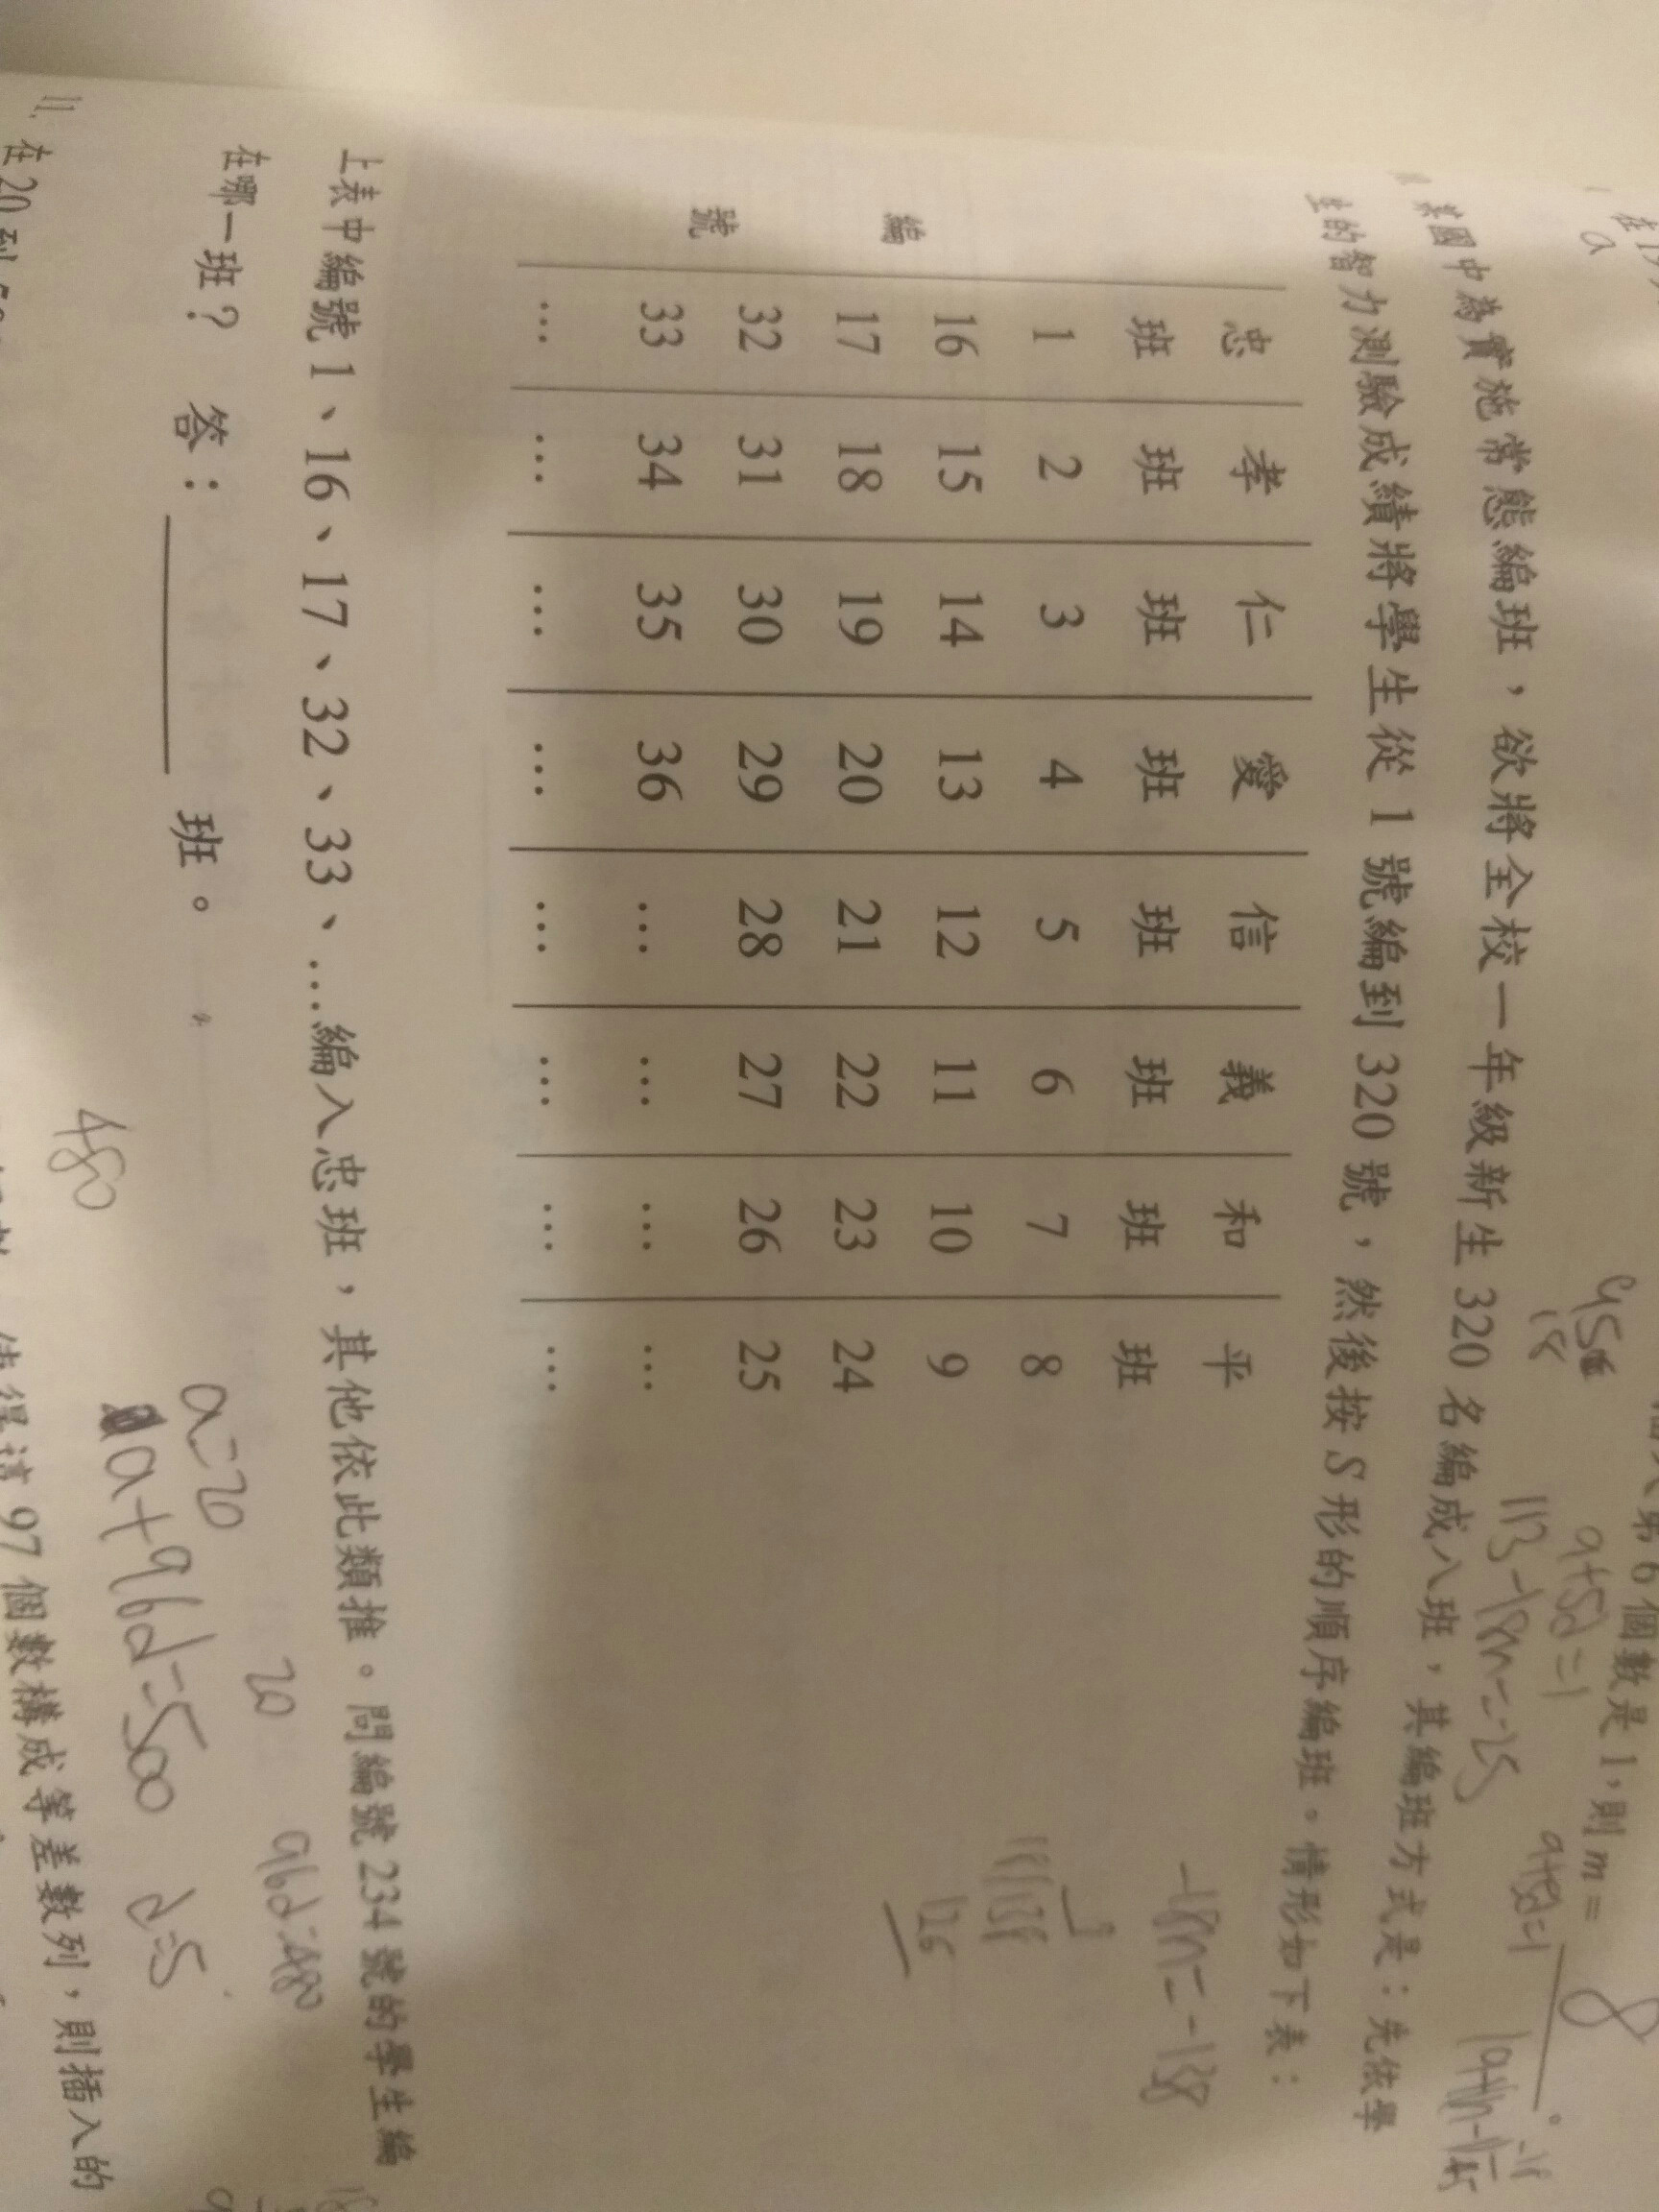 第 6 個數是 1，則 m = 8
a+5d=1
113-18m=-25
-18m=-138
某國中為實施常態編班，欲將全校一年級新生 320 名編成八班，其編班方式是：先依學
生的智力測驗成績將學生從 1 號編到 320 號，然後按 S 形的順序編班。情形如下表：
忠班 孝班 仁班 愛班 信班 義班 和班 平班
編號
1 2 3 4 5 6 7 8
16 15 14 13 12 11 10 9
17 18 19 20 21 22 23 24
32 31 30 29 28 27 26 25
33 34 35 36 … … … …
… … … … … … … …
上表中編號 1、16、17、32、33、…編入忠班，其他依此類推。問編號 234 號的學生編
在哪一班？ 答：＿＿＿＿ 班。
20 96d=480
a=20
a+96d=500 d=5
480
11. 在 20 到
使得這 97 個數構成等差數列，則插入的